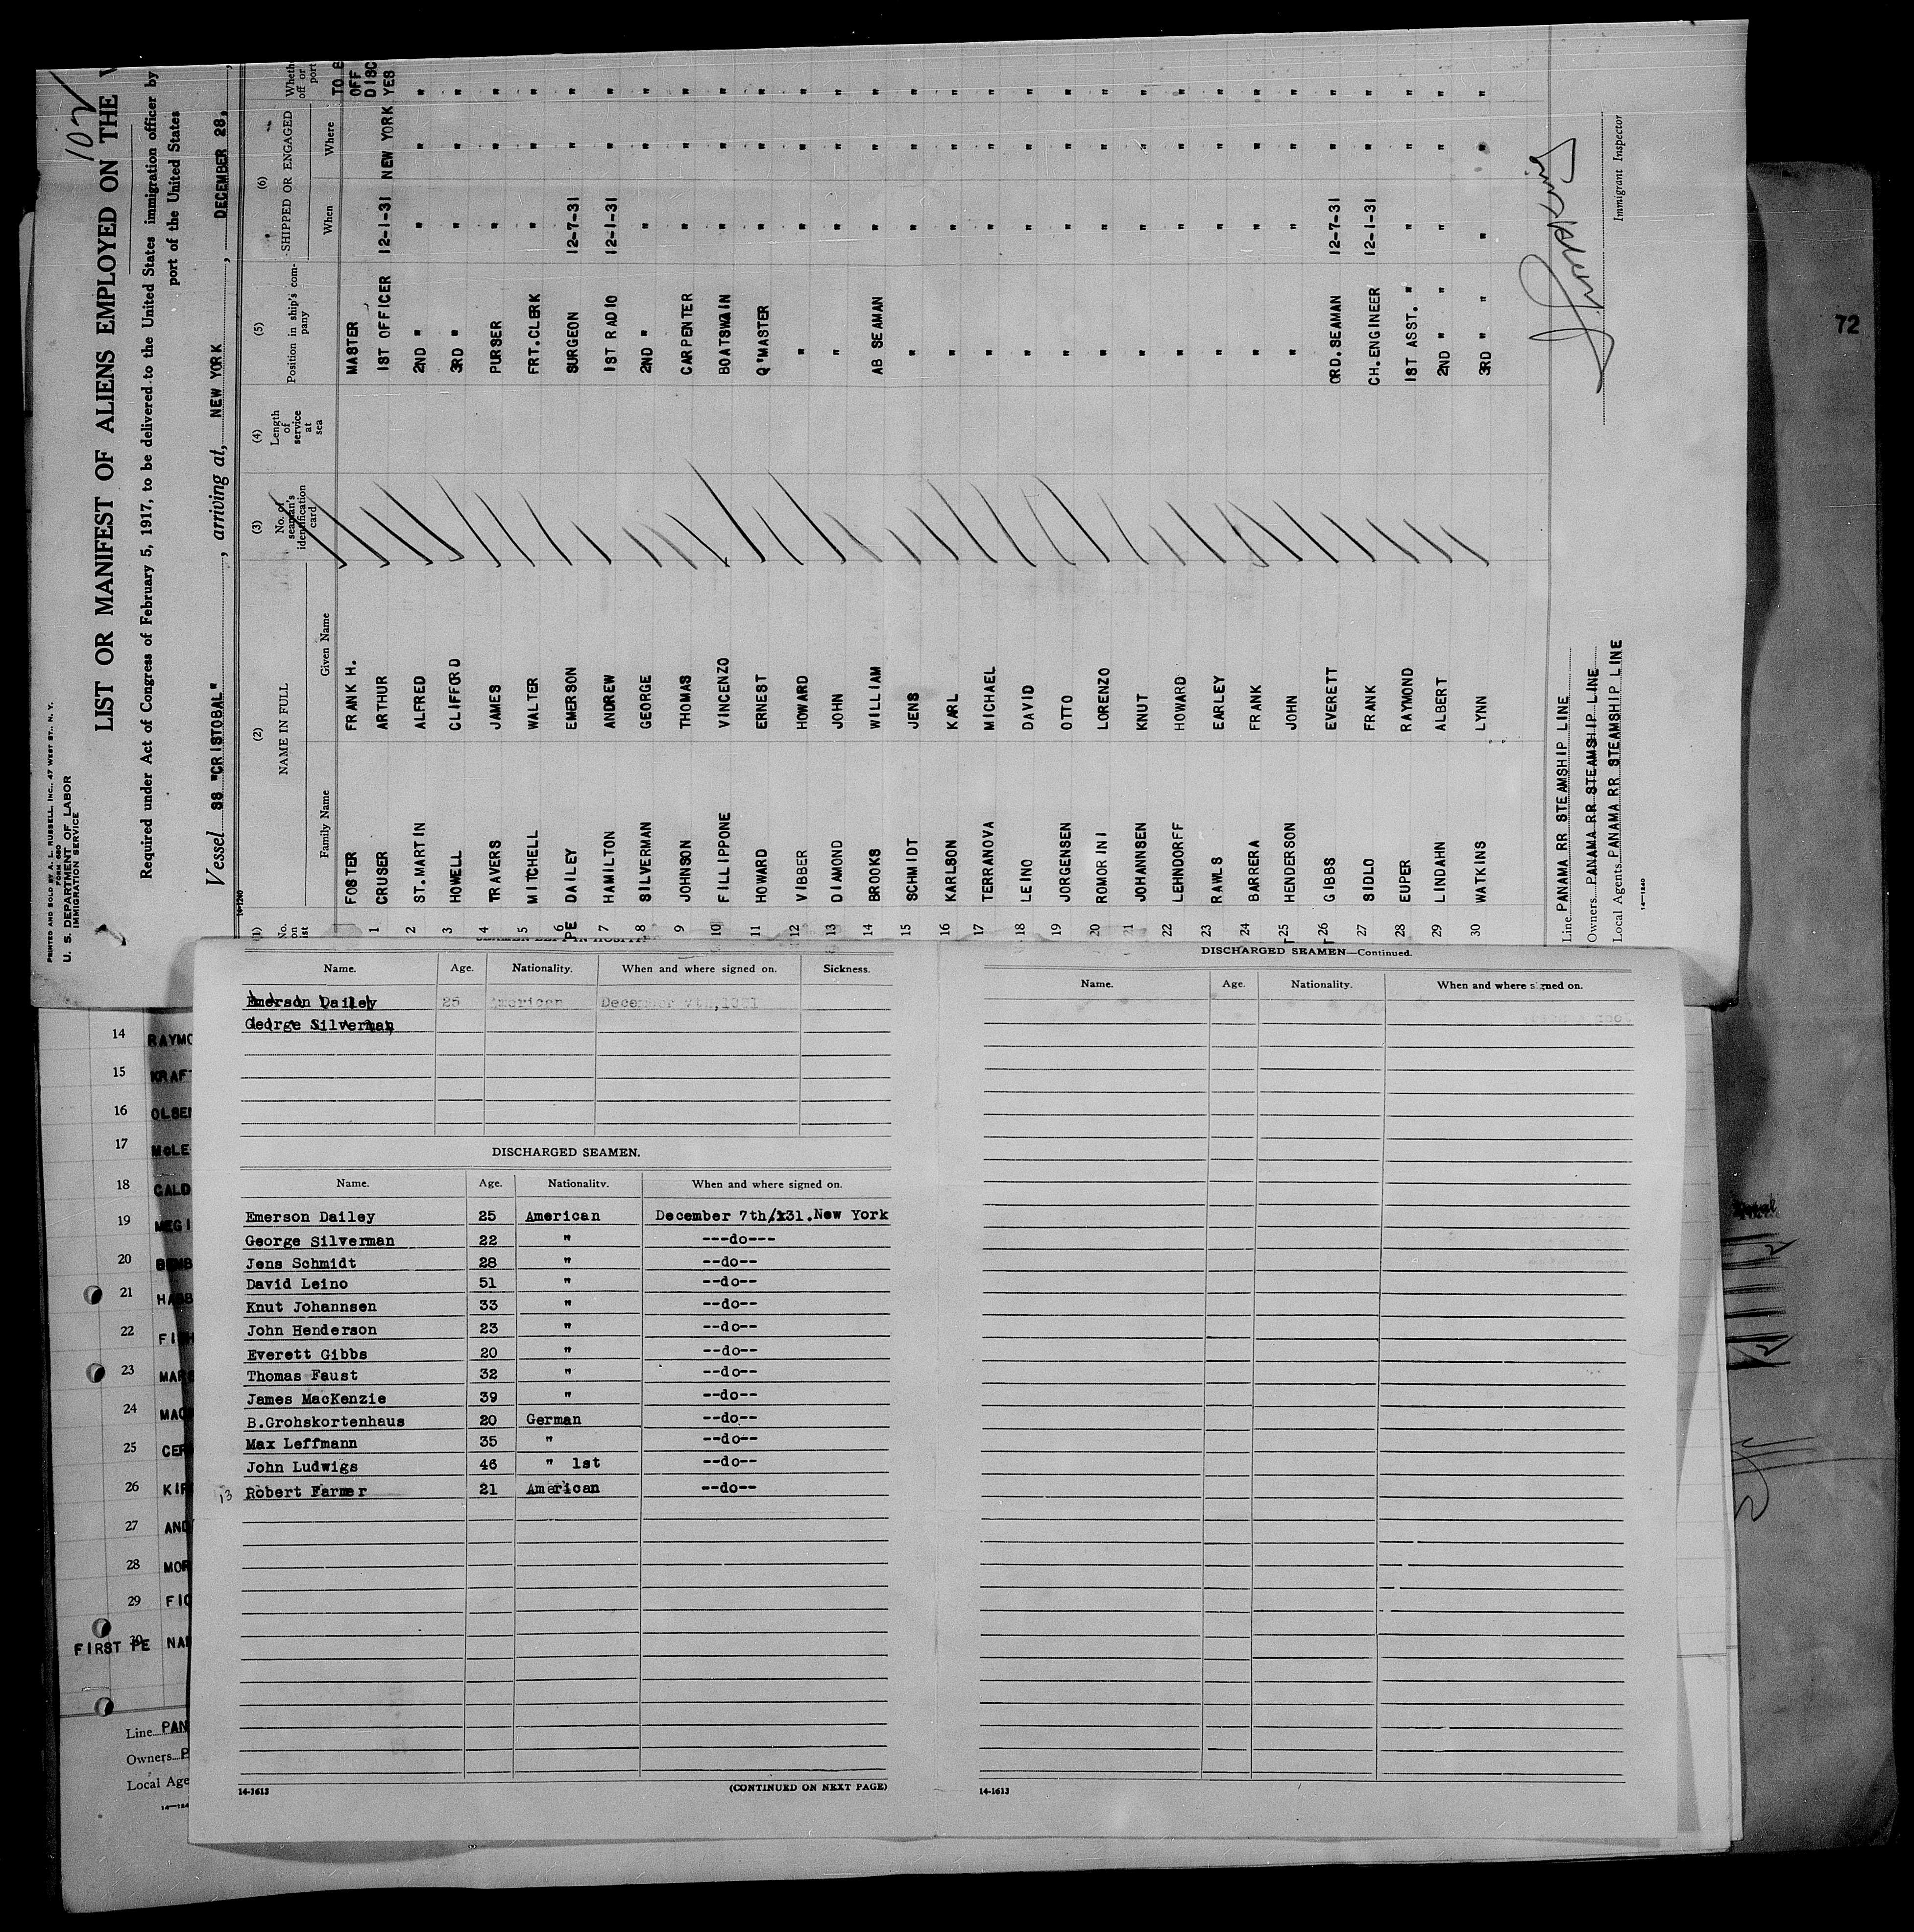 102
PRINTED AND SOLD BY A. L. RUSSELL, INC., 47 WEST ST., N. Y.
FORM 680
U. S. DEPARTMENT OF LABOR
IMMIGRATION SERVICE
LIST OR MANIFEST OF ALIENS EMPLOYED ON THE
Required under Act of Congress of February 5, 1917, to be delivered to the United States immigration officer by
port of the United States
Vessel SS "CRISTOBAL", arriving at, NEW YORK, DECEMBER 28,
14-1240
(1) (2) (3) (4) (5) (6)
No. on list NAME IN FULL No. of seaman's identification card Length of service at sea Position in ship's company SHIPPED OR ENGAGED
Family Name Given Name When Where
FOSTER FRANK H. MASTER
1 CRUSER ARTHUR 1ST OFFICER 12-1-31 NEW YORK YES
2 ST.MARTIN ALFRED 2ND " " " "
3 HOWELL CLIFFORD 3RD " " " "
4 TRAVERS JAMES PURSER " " "
5 MITCHELL WALTER FRT.CLERK " " "
6 PE DAILEY EMERSON SURGEON 12-7-31 " "
7 HAMILTON ANDREW 1ST RADIO 12-1-31 " "
8 SILVERMAN GEORGE 2ND " " " "
9 JOHNSON THOMAS CARPENTER " " "
10 FILLIPPONE VINCENZO BOATSWAIN " " "
11 HOWARD ERNEST Q"MASTER " " "
12 VIBBER HOWARD " " " "
13 DIAMOND JOHN " " " "
14 BROOKS WILLIAM AB SEAMAN " " "
15 SCHMIDT JENS " " " "
16 KARLSON KARL " " " "
17 TERRANOVA MICHAEL " " " "
18 LEINO DAVID " " " "
19 JORGENSEN OTTO " " " "
20 ROMORINI LORENZO " " " "
21 JOHANNSEN KNUT " " " "
22 LEHNDORFF HOWARD " " " "
23 RAWLS EARLEY " " " "
24 BARRERA FRANK " " " "
25 HENDERSON JOHN " " " "
26 GIBBS EVERETT ORD.SEAMAN 12-7-31 " "
27 SIDLO FRANK CH.ENGINEER 12-1-31 " "
28 EUPER RAYMOND 1ST ASST. " " " "
29 LINDAHN ALBERT 2ND " " " " "
30 WATKINS LYNN 3RD " " " " "
Line PANAMA RR STEAMSHIP LINE
Owners PANAMA RR STEAMSHIP LINE
Local Agents PANAMA RR STEAMSHIP LINE
Immigrant Inspector
14-1240
72
Name. Age. Nationality. When and where signed on. Sickness.
Emerson Dailey 25 American December 7th,1931
George Silverman
DISCHARGED SEAMEN.
Name. Age. Nationality. When and where signed on.
Emerson Dailey 25 American December 7th/31.New York
George Silverman 22 " ---do---
Jens Schmidt 28 " --do--
David Leino 51 " --do--
Knut Johannsen 33 " --do--
John Henderson 23 " --do--
Everett Gibbs 20 " --do--
Thomas Faust 32 " --do--
James MacKenzie 39 " --do--
B.Grohskortenhaus 20 German --do--
Max Leffmann 35 " --do--
John Ludwigs 46 " 1st --do--
13 Robert Farmer 21 American --do--
14-1613 (CONTINUED ON NEXT PAGE)
DISCHARGED SEAMEN—Continued.
Name. Age. Nationality. When and where signed on.
14-1613
14 RAYMO
15 KRAFT
16 OLSEN
17 McLE
18 CALD
19 MEGI
20
21
22
23
24
25 CER
26 KIR
27 AND
28 MOR
29 FIO
30 FIRST PE NAP
Line PAN
Owners P
Local Age